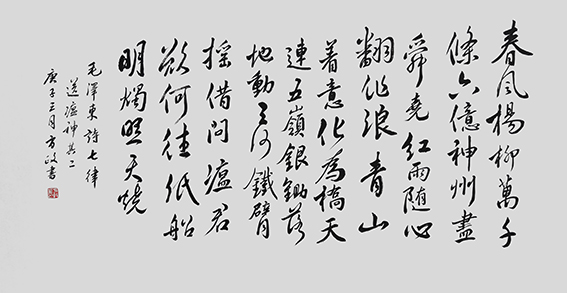 春风楊柳萬千
條六億神州盡
舜堯紅雨随心
翻作浪青山
着意化為橋天
連五嶺銀鋤落
地動三河鐵臂
摇借問瘟君
欲何往纸船
明燭照天燒
毛澤東詩七律
送瘟神其二
庚子三月方政書